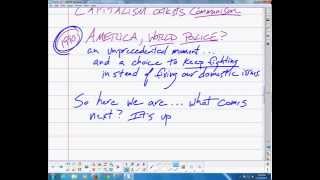 CAPITALISM defeats Communism
1990s AMERICA, WORLD POLICE?
an unprecedented moment...
and a choice to keep fighting
instead of fixing our domestic issues
So here we are... what comes
next? It's up